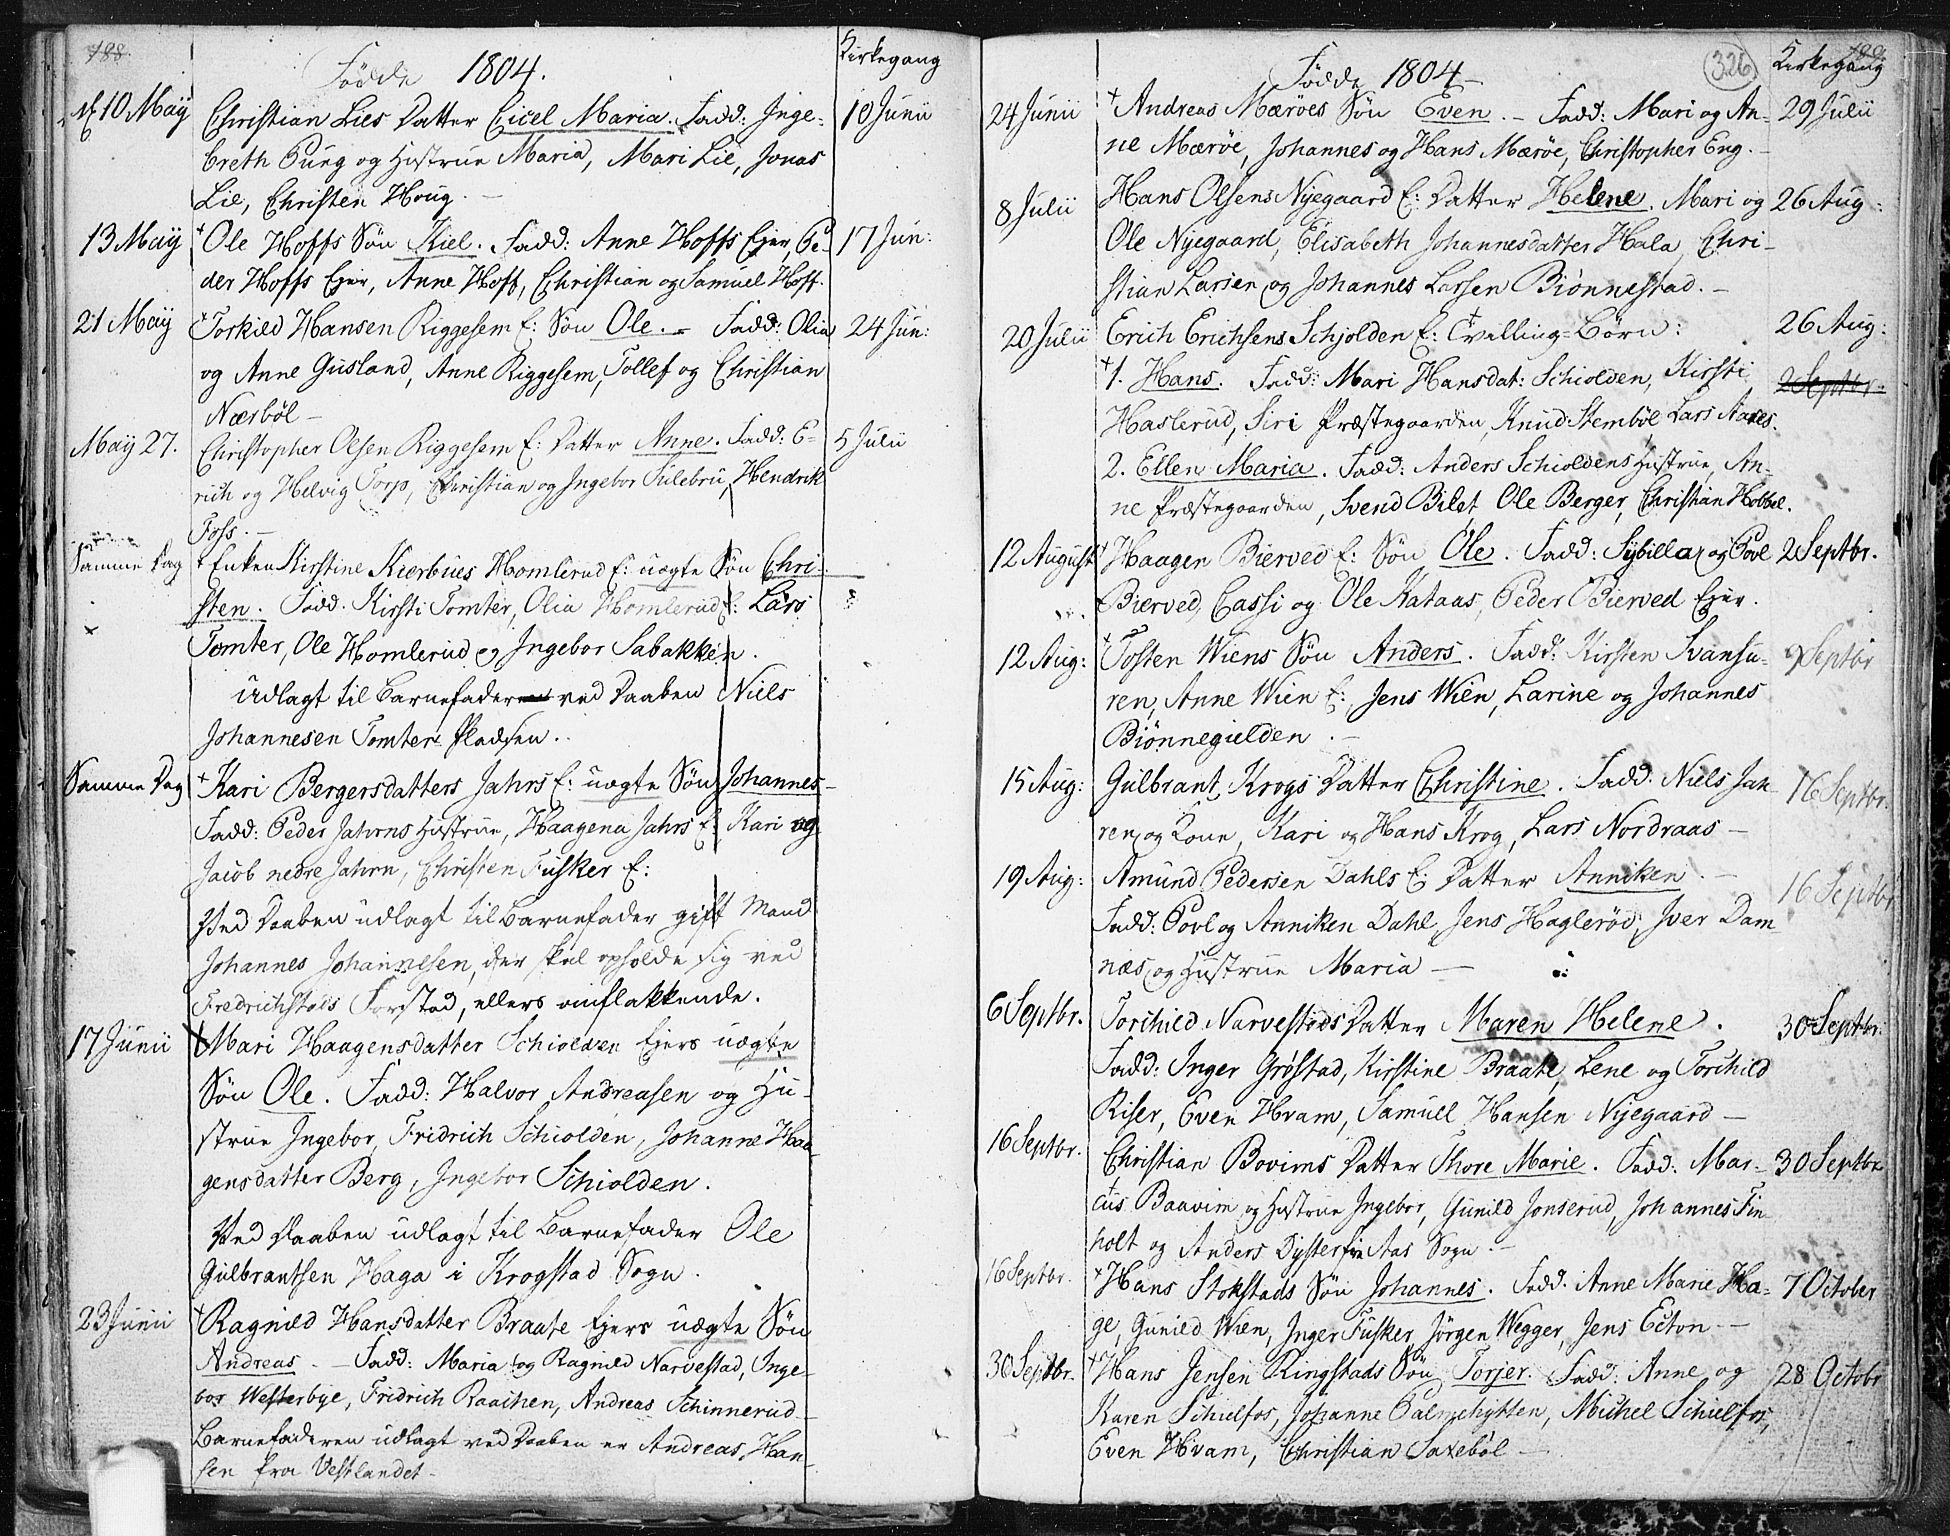 188.
Fødde 1804.
Kirkegang
d 10 May Christian Lies Datter Cicel Maria. Fadd: Inge- 10 Junii
breth Burg og Hustrue Maria, Mari Lie, Jonas
Lie, Christen Houg. -
13 May † Ole Hoffs Søn Kiel. Fadd: Anne Hoffs Ejer, Pe- 17 Jun:
der Hoffs Ejer, Anne Hoff, Christian og Samuel Hoff.
21 May † Torkild Hansen Riggesem E: Søn Ole. - Fadd: Olia 24 Jun:
og Anne Gusland, Anne Riggesem, Tollef og Christian
Nærbøl -
May 27. Christopher Olsen Riggesem E: Datter Anne. Fadd: E- 5 Julii
rich og Helvig Torp, Christian og Ingebor Tulebru, Hendrik
Foss. -
Samme Dag † Enken Kirstine Kierbues Homlerud E: uægte Søn Chri-
sten. Fadd. Kirsti Tomter, Olia Homlerud E: Lars
Tomter, Ole Homlerud og Ingebor Sabakken.
Udlagt til Barnefader ved Daaben Niels
Johannesen Tomter Pladsen..
Samme Dag † Kari Bergersdatters Jahrs E: uægte Søn Johannes -
Fadd: Peder Jahrns Hustrue, Haagena Jahrs E: Kari og
Jacob nedre Jahrn, Christen Fusker E:
Ved Daaben udlagt til Barnefader gift Mand
Johannes Johannesen, der skal opholde sig ved
Fredrichstads Forstad, ellers omflakkende.
17 Junii Mari Haagensdatter Schiolden Ejers uægte
Søn Ole. Fadd: Halvor Andreasen og Hu-
strue Ingebor, Fridrich Schiolden, Johanne Haa-
gensdatter Berg, Ingebor Schiolden.
Ved Daaben udlagt til Barnefader Ole
Gulbrantsen Haga i Krogstad Sogn.
23 Junii † Ragnild Hansdatter Braate Ejers uægte Søn
Andreas. - Fadd: Maria og Ragnild Narvestad, Inge-
bor Westerbye, Fridrich Raachen, Andreas Schinnerud -
Barnefaderen udlagt ved Daaben er Andreas Han-
sen fra Vestlandet -
189
326
Fødde 1804 -
Kirkegang
24 Junii † Andreas Mærøes Søn Even. - Fadd: Mari og An- 29 Julii
ne Mærøe, Johannes og Hans Mærøe, Christopher Eng. -
8 Julii Hans Olsens Nyegaard E: Datter Helene. Mari og 26 Aug:
Ole Nyegaard, Elisabeth Johannesdatter Hala, Chri-
stian Larsen og Johannes Larsen Biønnestad. -
20 Julii Erich Erichsens Schjolden E: Tvilling-Børn: 26 Aug:
† 1. Hans. Fadd: Mari Hansdat: Schiolden, Kirsti 2 Septbr.
Haslerud, Siri Præstegaarden, Knud Stembøl Lars Aases.
2. Ellen Maria. Fadd: Anders Schioldens Hustrue, An-
ne Præstegaarden, Svend Bilet, Ole Berger, Christian Hobbel.
12 August † Haagen Bierved E: Søn Ole. Fadd: Sybilla og Povl 2 Septbr.
Bierved, Cassi og Ole Kataas, Peder Bierved Ejer.
12 Aug: † Tosten Wiens Søn Anders. Fadd: Kirsten Svansu- 9 Septbr
ren, Anne Wien E: Jens Wien, Larine og Johannes
Biønnegulden. -
15 Aug: Gulbrant Krogs Datter Christine. Fadd: Niels Jah- 16 Septbr.
ren og Kone, Kari og Hans Krog, Lars Nordraas -
19 Aug: Amund Pedersen Dahls E: Datter Anniken. - 16 Septbr
Fadd: Povl og Anniken Dahl, Jens Haglerød, Iver Dam-
næs og Hustrue Maria -
6 Septbr. Torchild Narvestads Datter Maren Helene. 30 Septbr.
Fadd: Inger Grøstad, Kirstine Braate, Lene og Torchild
Riser, Even Hvam, Samuel Hansen Nyegaard -
16 Septbr. Christian Bovims Datter Thore Marie. Fadd: Mar- 30 Septbr
cus Baavim og Hustrue Ingebor, Gunild Jonserud, Johannes Fin-
holt og Anders Dyster i Aas Sogn. -
16 Septbr. † Hans Stokstads Søn Johannes. Fadd: Anne Marie Ha- 7 October
ge, Gunild Wien, Inger Fusker, Jørgen Wegger, Jens Ecton -
30 Septbr. † Hans Jensen Ringstads Søn Torjer. Fadd: Anne og 28 Octobr
Karen Schielfos, Johanne Palmehytten, Michel Schielfos,
Even Hvam, Christian Saxebøl -